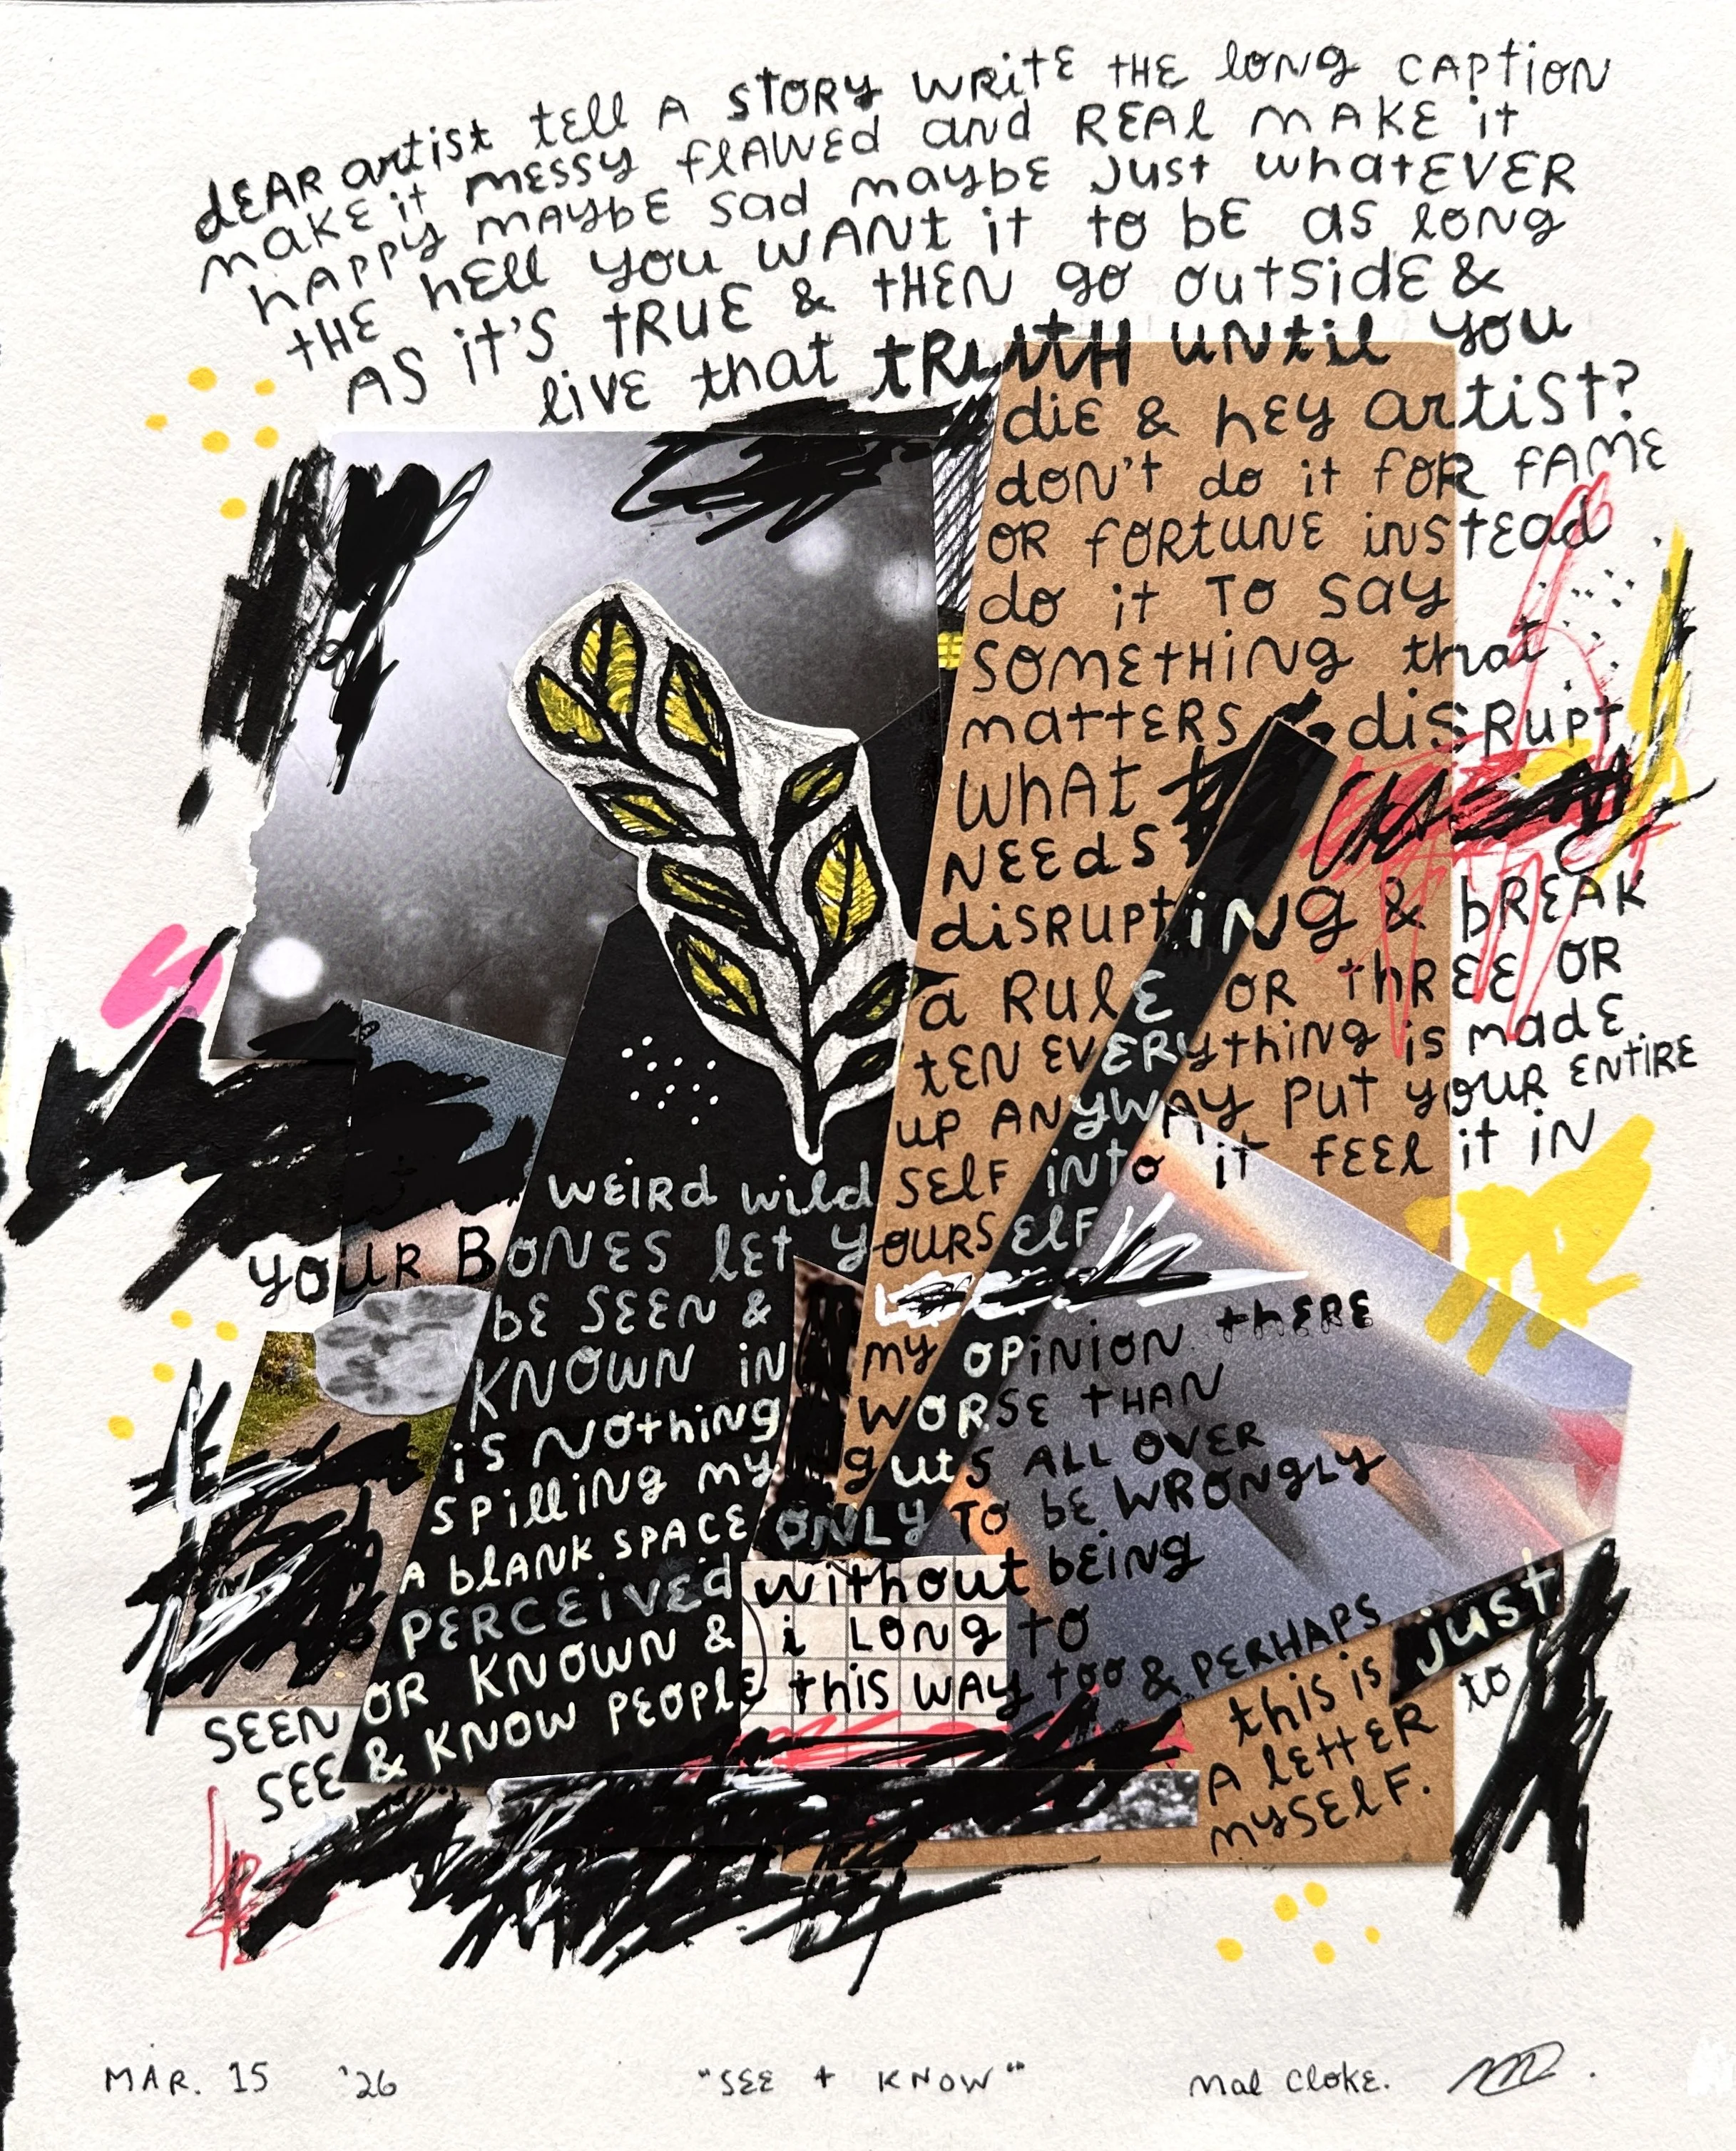 dEAR artist tell A STORY WRitE tHE long CAPtiON
make it messy flAWEd and REAl MAKE it
HAPPY MAYbE sad maybe just whatEVER
tHE HEll you WANt it to bE as long
AS it's tRUE & tHEN go outsidE &
livE that tRUtH UNtil you
diE & hEy artist?
dON't do it foR fAME
OR fORtUNE iNStEad
do it TO SAY
SOMEtHiNg that
mattERS & disRUPt
WHAt
NEEds
disRUPtiNg & bREAK
a RUlE OR thREE OR
tEN EVERythiNg is madE
UP ANYWAY PUt yOUR ENtiRE
WEiRd wild SElf iNto it fEEl it iN
yoUR BONES lEt yOURSElf
bE SEEN &
KNOWN iN my OPiNiON thERE
is NOthiNg WORSE tHAN
SPilliNg my guts All OVER
A blANK SPACE ONLY TO bE WRONgLY
PERCEivEd without bEiNg
SEEN OR KNOWN & i LONg to
SEE & KNOW PEOPlE this WAY too & PERHAPS
this is just
A lEttER to
mYSElf.
MAR. 15 '26 "SEE + KNOW" Mal ClOKE.